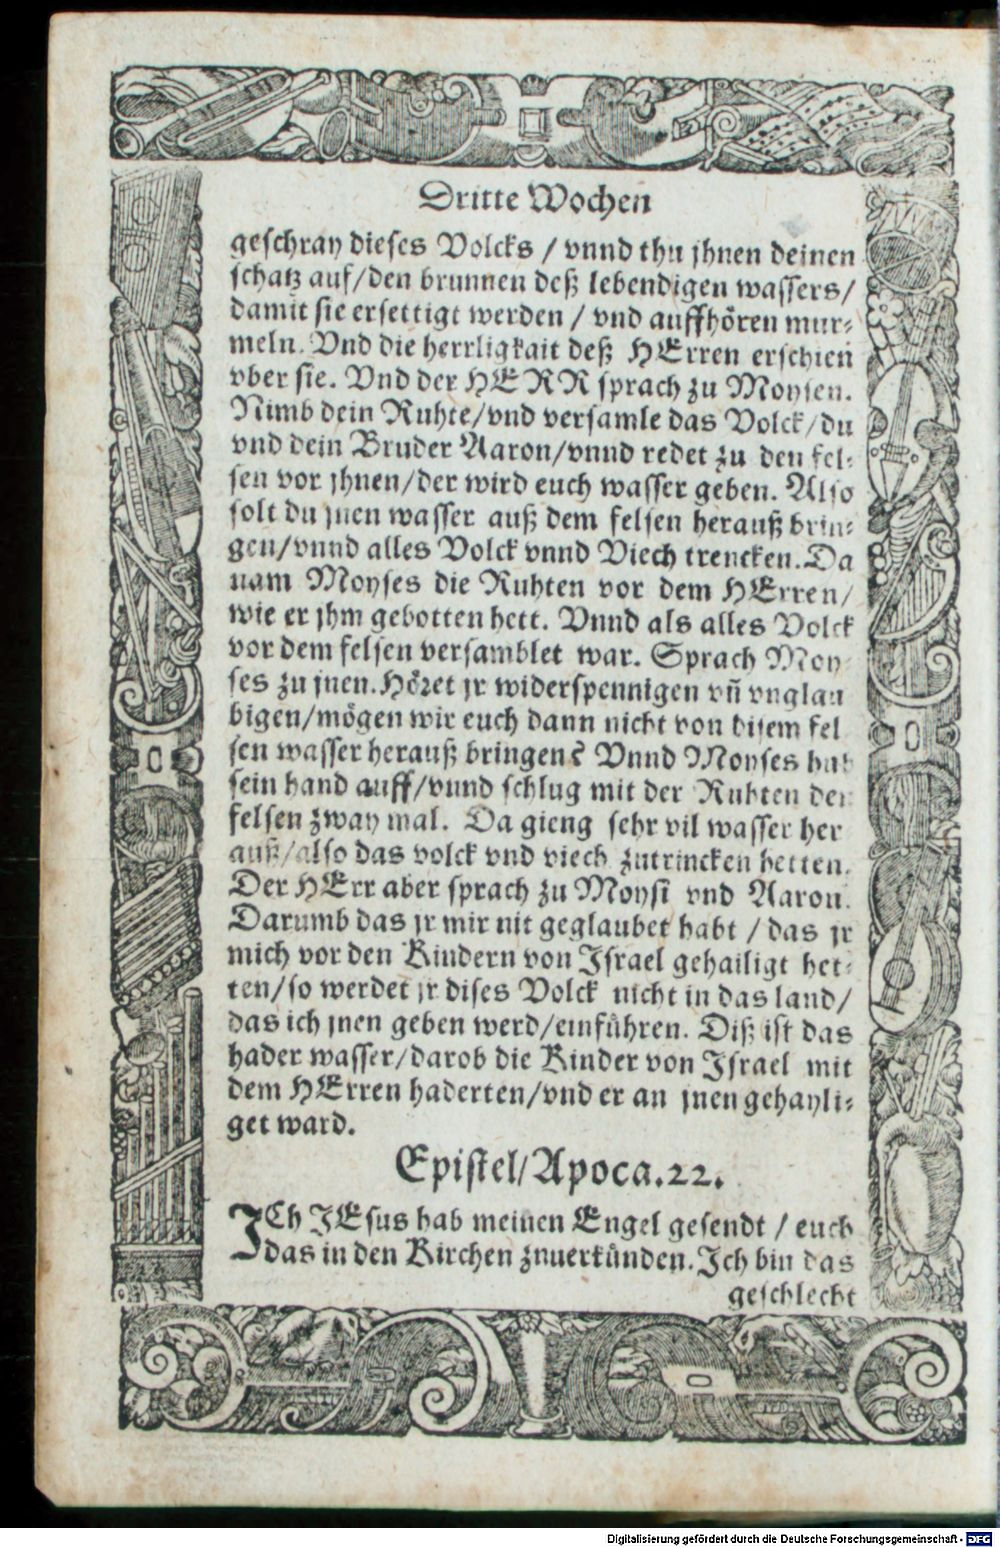 Dritte Wochen
geschray dieses Volcks / vnnd thu jhnen deinen
schatz auf/den brunnen deß lebendigen wassers/
damit sie ersettigt werden / vnd auffhören mur⸗
meln. Vnd die herrligkait deß HErren erschien
vber sie. Vnd der HERR sprach zu Moysen.
Nimb dein Ruhte/vnd versamle das Volck/du
vnd dein Bruder Aaron/vnnd redet zu den fel⸗
sen vor jhnen/der wird euch wasser geben. Also
solt du jnen wasser auß dem felsen herauß brin⸗
gen/vnnd alles Volck vnnd Viech trencken. Da
nam Moyses die Ruhten vor dem HErren/
wie er jhm gebotten hett. Vnnd als alles Volck
vor dem felsen versamblet war. Sprach Moy
ses zu jnen. Höret jr widerspennigen vñ vnglau
bigen/mögen wir euch dann nicht von disem fel
sen wasser herauß bringen? Vnnd Moyses hub
sein hand auff/vnnd schlug mit der Ruhten den
felsen zway mal. Da gieng sehr vil wasser her
auß/also das volck vnd viech zutrincken hetten.
Der HErr aber sprach zu Moysi vnd Aaron.
Darumb das jr mir nit geglaubet habt / das jr
mich vor den Kindern von Israel gehailigt het⸗
ten/so werdet jr dises Volck nicht in das land/
das ich jnen geben werd/einführen. Diß ist das
hader wasser/darob die Kinder von Israel mit
dem HErren haderten/vnd er an jnen gehayli⸗
get ward.
Epistel/Apoca.22.
ICh JEsus hab meinen Engel gesendt / euch
das in den Kirchen znuerkünden. Ich bin das
geschlecht
Digitalisierung gefördert durch die Deutsche Forschungsgemeinschaft - DFG